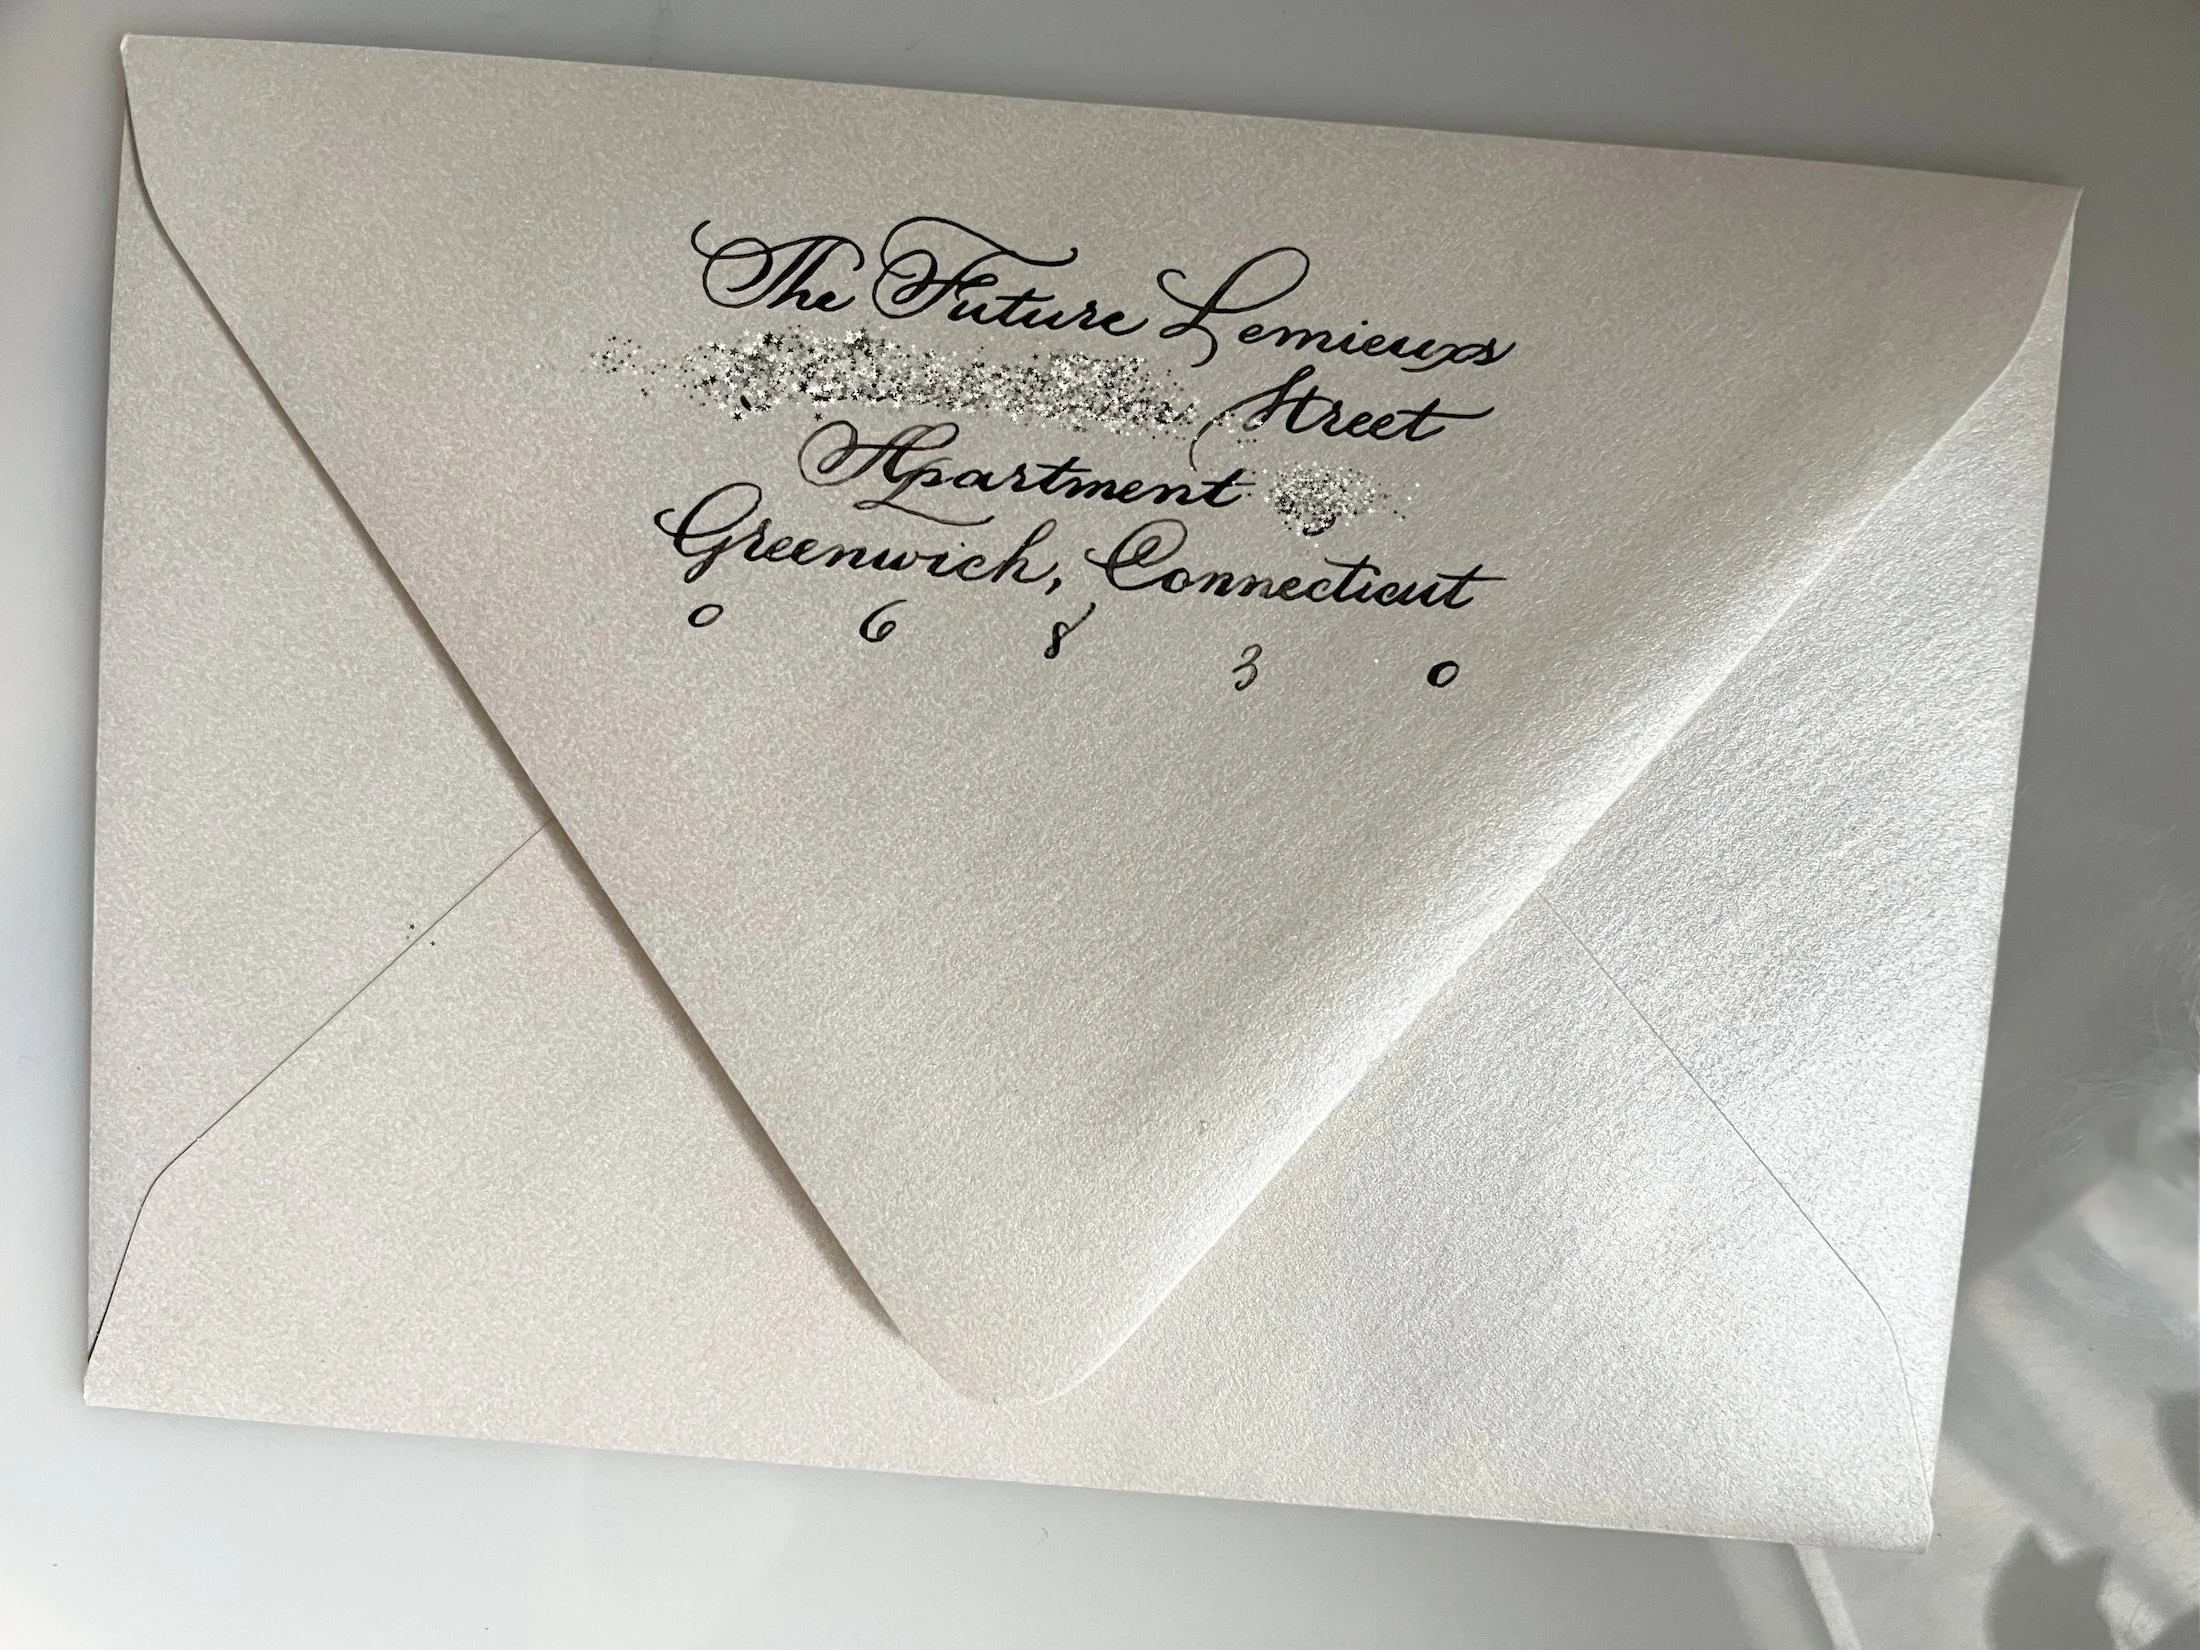 The Future Lemieuxs
Street
Apartment
Greenwich, Connecticut
0 6 8 3 0